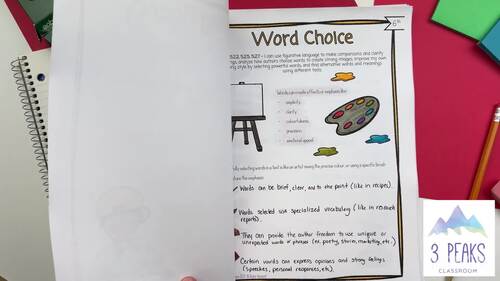 Word Choice
6th
S22, S25, S27 - I can use figurative language to make comparisons and clarify
analyze how authors choose words to create strong images, improve my own
style by selecting powerful words, and find alternative words and meanings
using different tools.
Words can create effects or emphasis like:
- simplicity
- clarity
- colourfulness
- precision
- emotional appeal
selecting words in a text is like an artist mixing the precise colour, or using a specific brush
the emphasis.
Words can be brief, clear, and to the point (like in recipes).
Words selected use specialized vocabulary (like in research
reports).
They can provide the author freedom to use unique or
unexpected words or phrases (ex. poetry, stories, marketing, etc.)
Certain words can express opinions and strong feelings
(speeches, personal responses, etc).
3 PEAKS
CLASSROOM